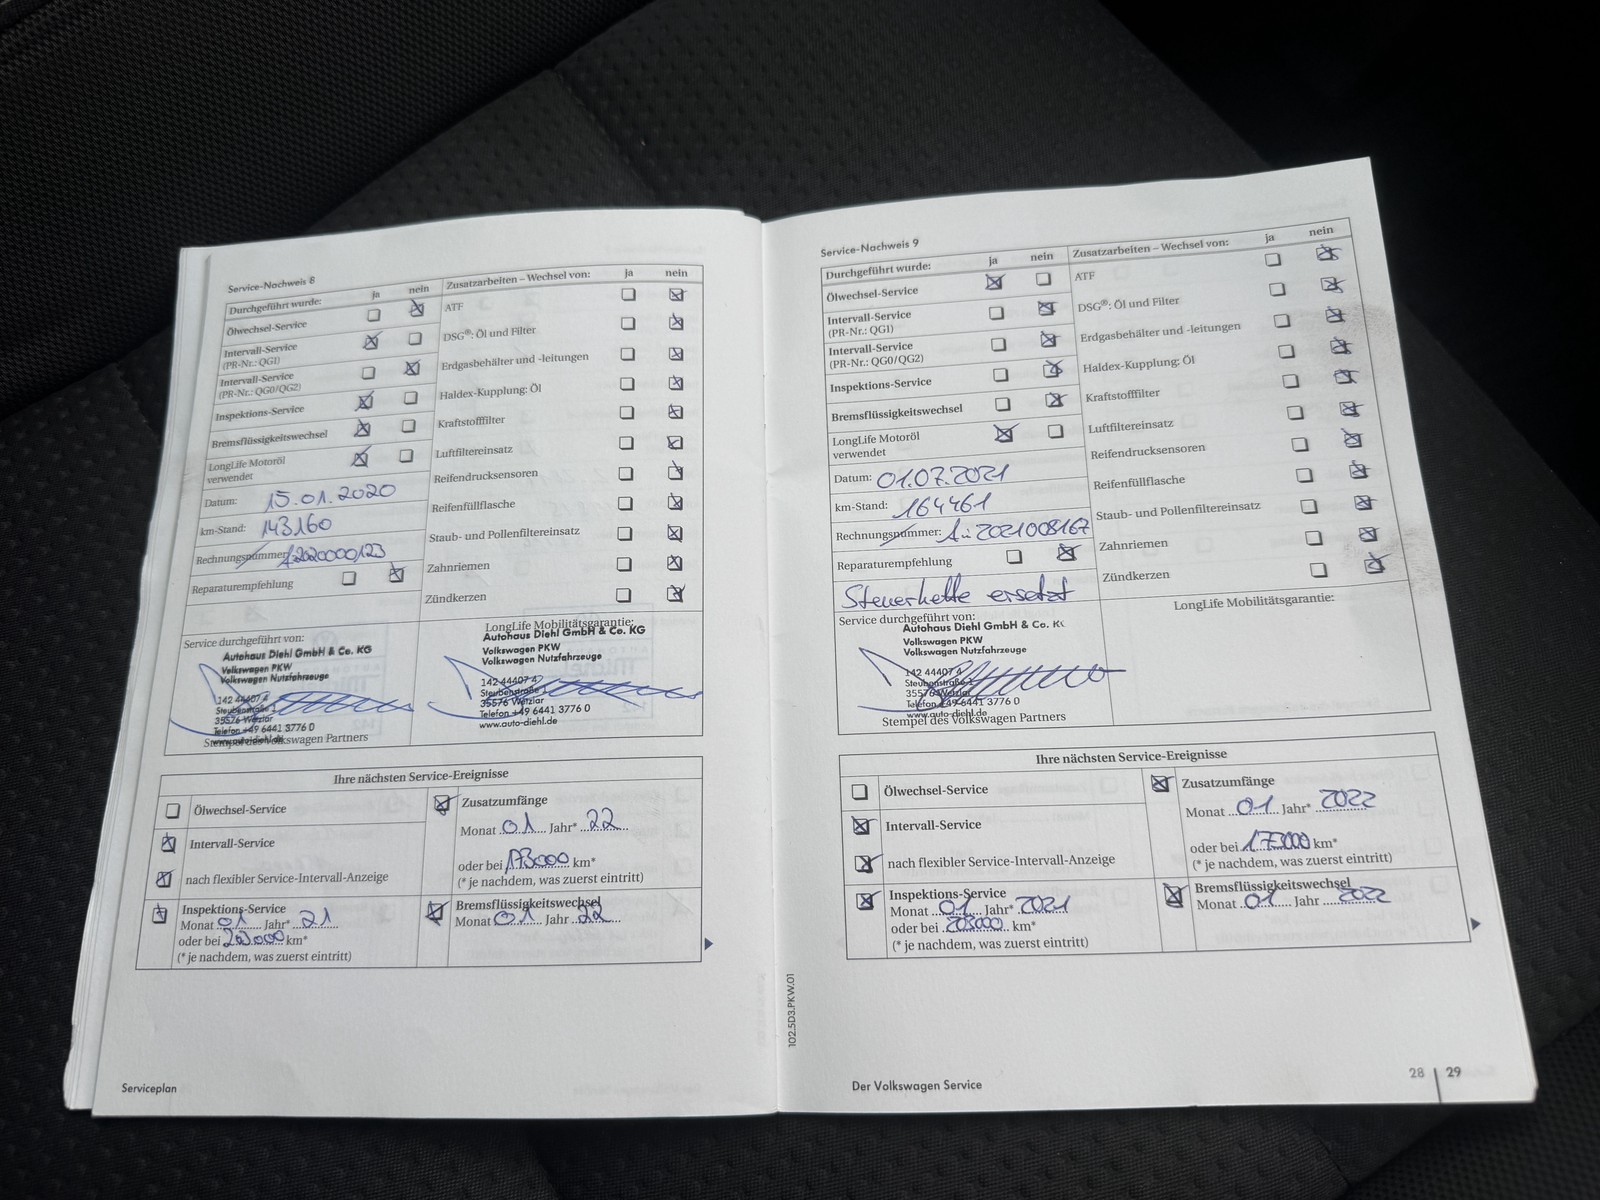 Service-Nachweis 8
Durchgeführt wurde: ja nein
Ölwechsel-Service
Intervall-Service
(PR-Nr.: QG1)
Intervall-Service
(PR-Nr.: QG0/QG2)
Inspektions-Service
Bremsflüssigkeitswechsel
LongLife Motoröl
verwendet
Datum: 15.01.2020
km-Stand: 143160
Rechnungsnummer:
Reparaturempfehlung
Zusatzarbeiten – Wechsel von: ja nein
ATF
DSG®: Öl und Filter
Erdgasbehälter und -leitungen
Haldex-Kupplung: Öl
Kraftstofffilter
Luftfiltereinsatz
Reifendrucksensoren
Reifenfüllflasche
Staub- und Pollenfiltereinsatz
Zahnriemen
Zündkerzen
Service durchgeführt von:
Autohaus Diehl GmbH & Co. KG
Volkswagen PKW
Volkswagen Nutzfahrzeuge
142 44407 4
Steubenstraße 1
35576 Wetzlar
Telefon +49 6441 3776 0
www.auto-diehl.de
Stempel des Volkswagen Partners
LongLife Mobilitätsgarantie:
Autohaus Diehl GmbH & Co. KG
Volkswagen PKW
Volkswagen Nutzfahrzeuge
142 44407 4
Steubenstraße 1
35576 Wetzlar
Telefon +49 6441 3776 0
www.auto-diehl.de
Ihre nächsten Service-Ereignisse
Ölwechsel-Service
Intervall-Service
nach flexibler Service-Intervall-Anzeige
Inspektions-Service
Monat 01 Jahr* 21
oder bei km*
(* je nachdem, was zuerst eintritt)
Zusatzumfänge
Monat 01 Jahr* 22
oder bei 173000 km*
(* je nachdem, was zuerst eintritt)
Bremsflüssigkeitswechsel
Monat 01 Jahr 22
Serviceplan
Service-Nachweis 9
Durchgeführt wurde: ja nein
Ölwechsel-Service
Intervall-Service
(PR-Nr.: QG1)
Intervall-Service
(PR-Nr.: QG0/QG2)
Inspektions-Service
Bremsflüssigkeitswechsel
LongLife Motoröl
verwendet
Datum: 01.07.2021
km-Stand: 164461
Rechnungsnummer: 2021008167
Reparaturempfehlung
Steuerkette ersetzt
Zusatzarbeiten – Wechsel von: ja nein
ATF
DSG®: Öl und Filter
Erdgasbehälter und -leitungen
Haldex-Kupplung: Öl
Kraftstofffilter
Luftfiltereinsatz
Reifendrucksensoren
Reifenfüllflasche
Staub- und Pollenfiltereinsatz
Zahnriemen
Zündkerzen
Service durchgeführt von:
Autohaus Diehl GmbH & Co. K
Volkswagen PKW
Volkswagen Nutzfahrzeuge
142 44407 4
Steubenstraße 1
35576 Wetzlar
Telefon +49 6441 3776 0
www.auto-diehl.de
Stempel des Volkswagen Partners
LongLife Mobilitätsgarantie:
Ihre nächsten Service-Ereignisse
Ölwechsel-Service
Intervall-Service
nach flexibler Service-Intervall-Anzeige
Inspektions-Service
Monat 01 Jahr* 2021
oder bei 203000 km*
(* je nachdem, was zuerst eintritt)
Zusatzumfänge
Monat 01 Jahr* 2022
oder bei 173000 km*
(* je nachdem, was zuerst eintritt)
Bremsflüssigkeitswechsel
Monat 01 Jahr 2022
102.5D3.PKW.01
Der Volkswagen Service
28 29